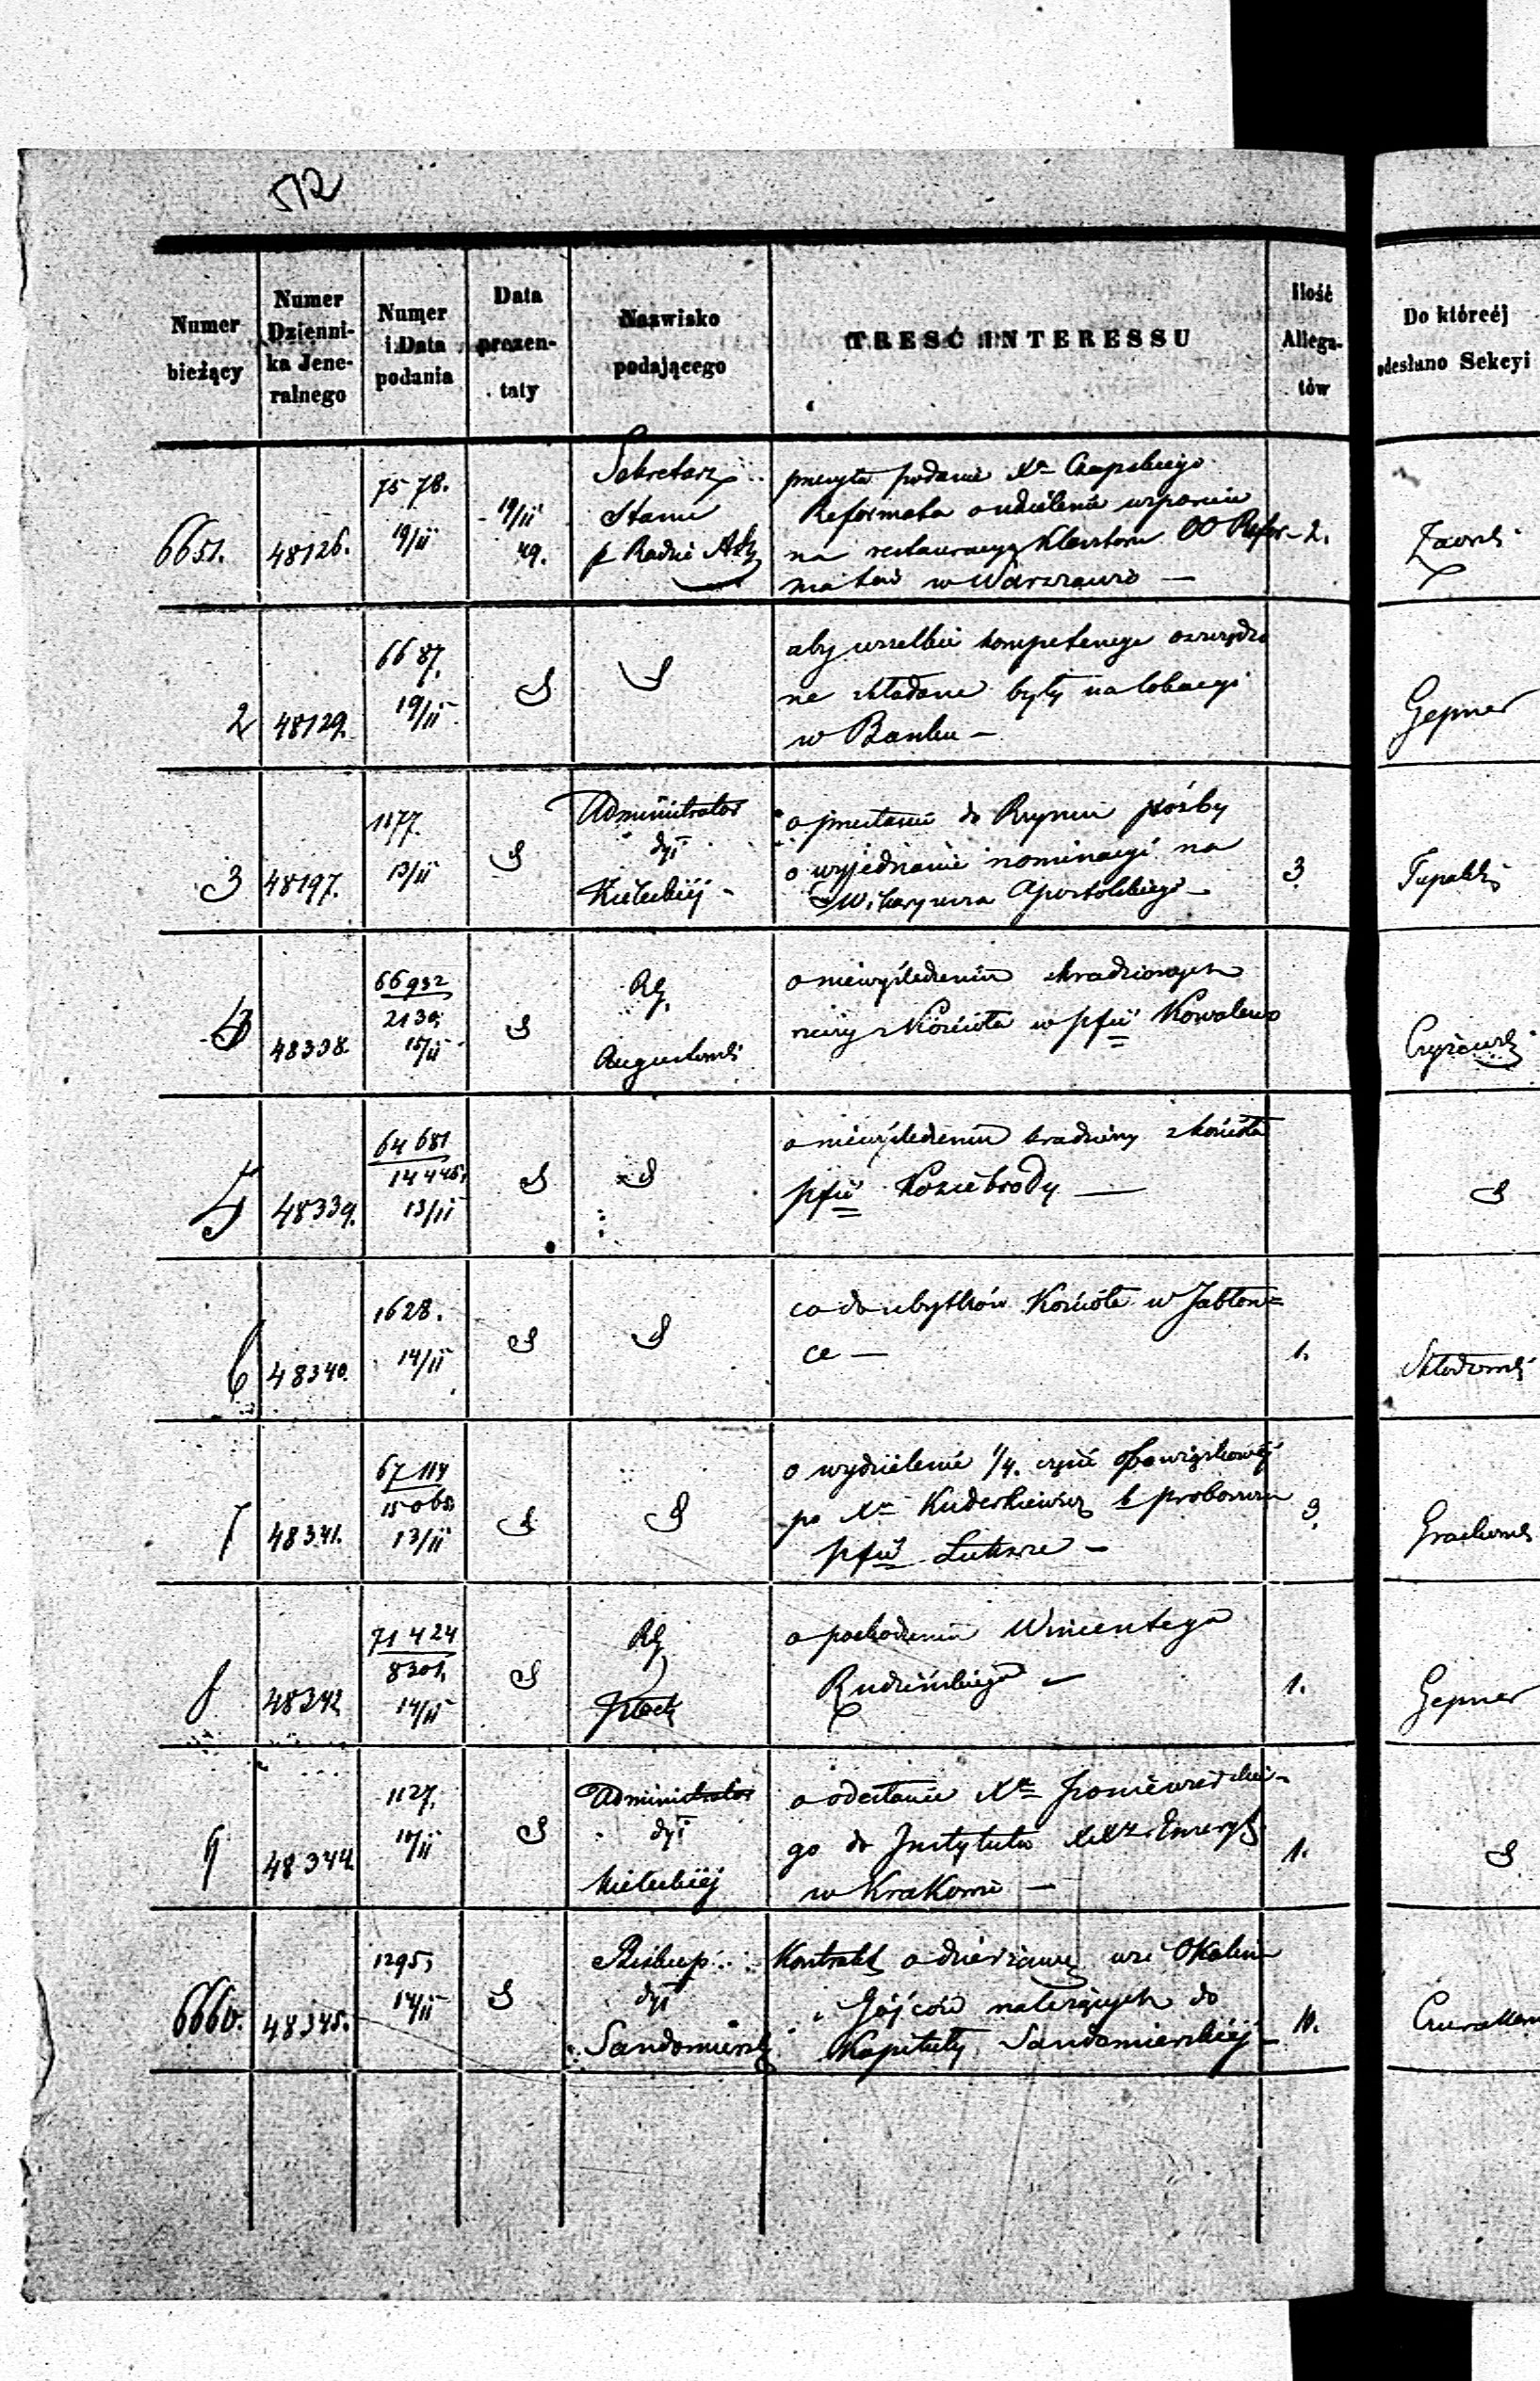 512
Numer bieżący
Numer Dzienni-ka Jene-ralnego
Numer i Data podania
Data prezen-taty
Nazwisko podającego
TRESĆ INTERESSU
Ilość Allega-tów
Do któreéj odesłano Sekcyi
6651.
48126.
7578.
19/11
19/11
49.
Sekretarz
Stanu
p Radzie
przesyła podanie Xa Czapskiego
Reformata o udzielenie wsparcia
na restauracyę Klasztoru OO Refor-
matów w Warszawie —
2.
2
48129.
6687.
19/11
aby wszelkie kompetencye
ne składane były na lokacyi
w Banku —
Gepner
3
48197.
1177.
13/11
Administrator
dyi
Kieleckiéj
o przesłanie do Rzymu prośby
o wyjednanie nominacyi na
Wikaryusza Apostolskiego —
3
4
48338.
66932
2130.
15/11
Rg
Augustowski
o niewyśledzeniu skradzionych
rzeczy z Kościoła w pfii Kowalewo
5
48339.
64681
14445.
13/11
o niewyśledzeniu kradzieży z kościoła
pfii Koziebrody —
6
48340.
1628.
14/11
co do ubytków Kościoła w Jabłon=
ce —
1.
7
48341.
67114
15060
13/11
o wydzielenie 1/4. części obowiązkowéj
po Xu Kuderkiewicz b proboszczu
pfii —
3.
8
48342
71424
8301.
14/11
Rg
Płock
o pochodzeniu Wincentego
Rudzińskiego —
1.
Gepner
9
48344
1127.
10/11
Administrator
dyi
Kieleckiéj
o odesłanie Xa
go do Instytutu XXży Emeryt.
w Krakowie —
1.
6660.
48345.
1295,
14/11
Biskup
dyi
Sandomierski
Kontrakt o dzierżawę wsi Okalin
i Gójców należących do
Kapituły Sandomierskiéj —